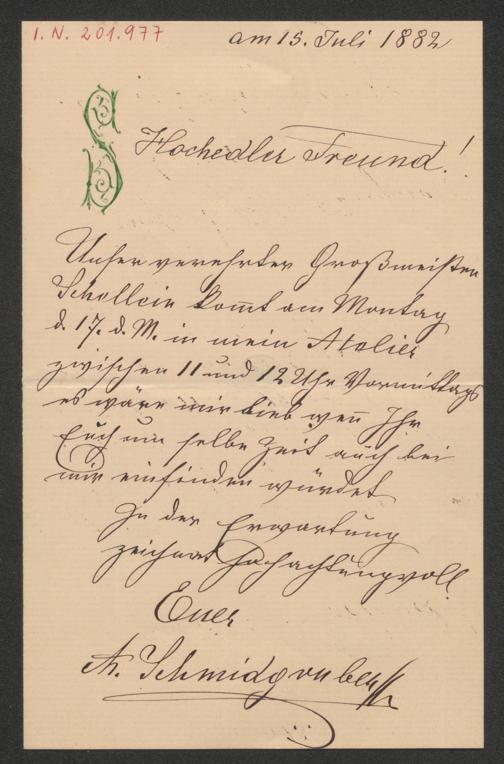 I. N. 201.977
am 15. Juli 1882
S
Hochedler Freund!
Unser verehrter Großmeister
Schellein kom̅t am Montag
d. 17. d. M. in mein Atelier
zwischen 11 und 12 Uhr Vormittags
es wäre mir lieb wen̅ Ihr
Euch um selbe Zeit auch bei
mir einfinden würdet
In der Erwartung
zeichnet Hochachtungsvoll
Euer
A. Schmidgruber